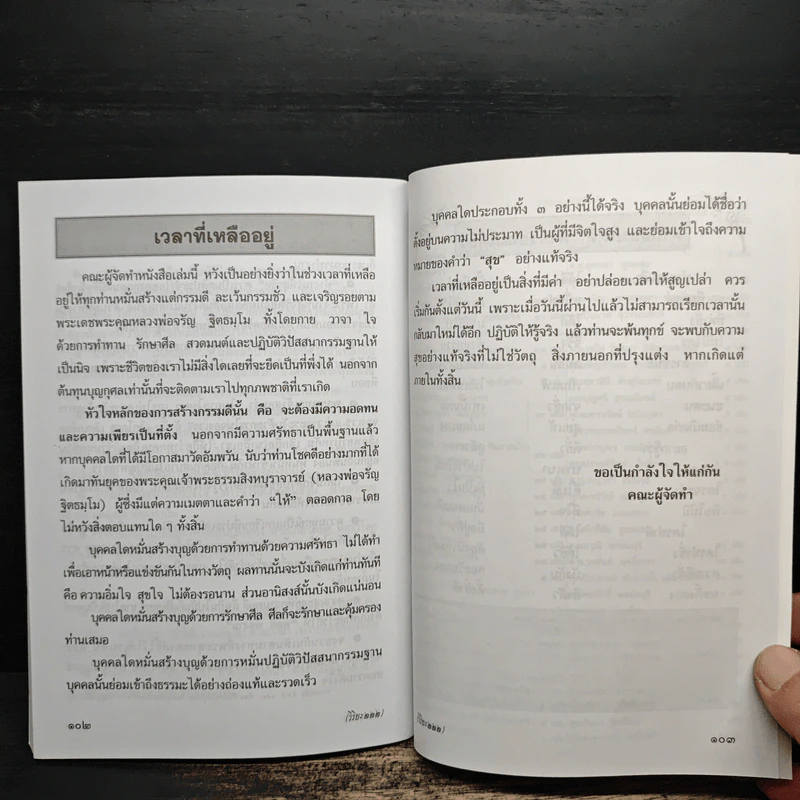 เวลาที่เหลืออยู่
คณะผู้จัดทำหนังสือเล่มนี้ หวังเป็นอย่างยิ่งว่าในช่วงเวลาที่เหลือ
อยู่ให้ทุกท่านหมั่นสร้างแต่กรรมดี ละเว้นกรรมชั่ว และเจริญรอยตาม
พระเดชพระคุณหลวงพ่อจรัญ ฐิตธมฺโม ทั้งโดยกาย วาจา ใจ
ด้วยการทำทาน รักษาศีล สวดมนต์และปฏิบัติวิปัสสนากรรมฐานให้
เป็นนิจ เพราะชีวิตของเราไม่มีสิ่งใดเลยที่จะยึดเป็นที่พึ่งได้ นอกจาก
ต้นทุนบุญกุศลเท่านั้นที่จะติดตามเราไปทุกภพชาติที่เราเกิด
หัวใจหลักของการสร้างกรรมดีนั้น คือ จะต้องมีความอดทน
และความเพียรเป็นที่ตั้ง นอกจากมีความศรัทธาเป็นพื้นฐานแล้ว
หากบุคคลใดที่ได้มีโอกาสมาวัดอัมพวัน นับว่าท่านโชคดีอย่างมากที่ได้
เกิดมาทันยุคของพระคุณเจ้าพระธรรมสิงหบุราจารย์ (หลวงพ่อจรัญ
ฐิตธมฺโม) ผู้ซึ่งมีแต่ความเมตตาและคำว่า “ให้” ตลอดกาล โดย
ไม่หวังสิ่งตอบแทนใด ๆ ทั้งสิ้น
บุคคลใดหมั่นสร้างบุญด้วยการทำทานด้วยความศรัทธา ไม่ได้ทำ
เพื่อเอาหน้าหรือแข่งขันกันในทางวัตถุ ผลทานนั้นจะบังเกิดแก่ท่านทันที
คือ ความอิ่มใจ สุขใจ ไม่ต้องรอนาน ส่วนอานิสงส์นั้นบังเกิดแน่นอน
บุคคลใดหมั่นสร้างบุญด้วยการรักษาศีล ศีลก็จะรักษาและคุ้มครอง
ท่านเสมอ
บุคคลใดหมั่นสร้างบุญด้วยการหมั่นปฏิบัติวิปัสสนากรรมฐาน
บุคคลนั้นย่อมเข้าถึงธรรมะได้อย่างถ่องแท้และรวดเร็ว
๑๐๒
(วิริยะ๒๒๒)
บุคคลใดประกอบทั้ง ๓ อย่างนี้ได้จริง บุคคลนั้นย่อมได้ชื่อว่า
ตั้งอยู่บนความไม่ประมาท เป็นผู้ที่มีจิตใจสูง และย่อมเข้าใจถึงความ
หมายของคำว่า “สุข” อย่างแท้จริง
เวลาที่เหลืออยู่เป็นสิ่งที่มีค่า อย่าปล่อยเวลาให้สูญเปล่า ควร
เริ่มกันตั้งแต่วันนี้ เพราะเมื่อวันนี้ผ่านไปแล้วไม่สามารถเรียกเวลานั้น
กลับมาใหม่ได้อีก ปฏิบัติให้รู้จริง แล้วท่านจะพ้นทุกข์ จะพบกับความ
สุขอย่างแท้จริงที่ไม่ใช่วัตถุ สิ่งภายนอกที่ปรุงแต่ง หากเกิดแต่
ภายในทั้งสิ้น
ขอเป็นกำลังใจให้แก่กัน
คณะผู้จัดทำ
(วิริยะ๒๒๒)
๑๐๓